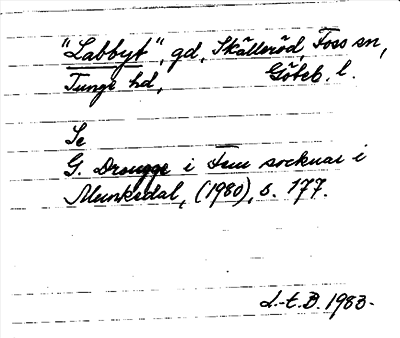 "Labbyt", gd, Skälleröd, Foss sn,
Tunge hd, Göteb. l.
Se
G. Drougge i Fem socknar i
Munkedal, (1980), s. 177.
L.-t.B. 1983.